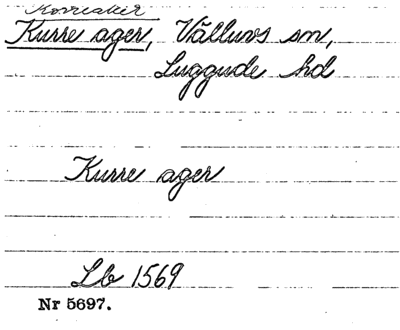 Korreåker
Kurre ager, Välluvs sn,
Luggude hd
Kurre ager
Lb 1569
Nr 5697.